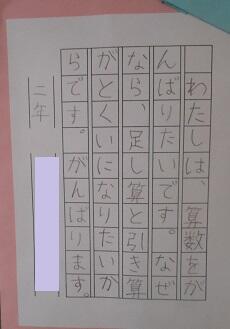 わたしは、算数をが
んばりたいです。なぜ
なら、足し算と引き算
がとくいになりたいか
らです。がんばります。
二年